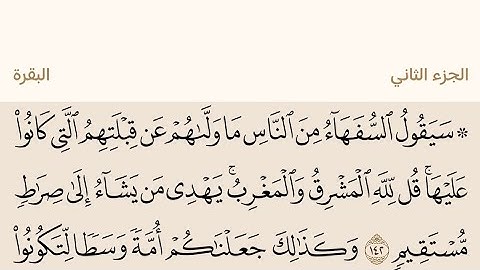 الجزء الثاني البقرة
۞ سَيَقُولُ ٱلسُّفَهَآءُ مِنَ ٱلنَّاسِ مَا وَلَّىٰهُمْ عَن قِبْلَتِهِمُ ٱلَّتِى كَانُوا۟
عَلَيْهَا ۚ قُل لِّلَّهِ ٱلْمَشْرِقُ وَٱلْمَغْرِبُ ۚ يَهْدِى مَن يَشَآءُ إِلَىٰ صِرَٰطٍ
مُّسْتَقِيمٍ ١٤٢ وَكَذَٰلِكَ جَعَلْنَٰكُمْ أُمَّةً وَسَطًا لِّتَكُونُوا۟